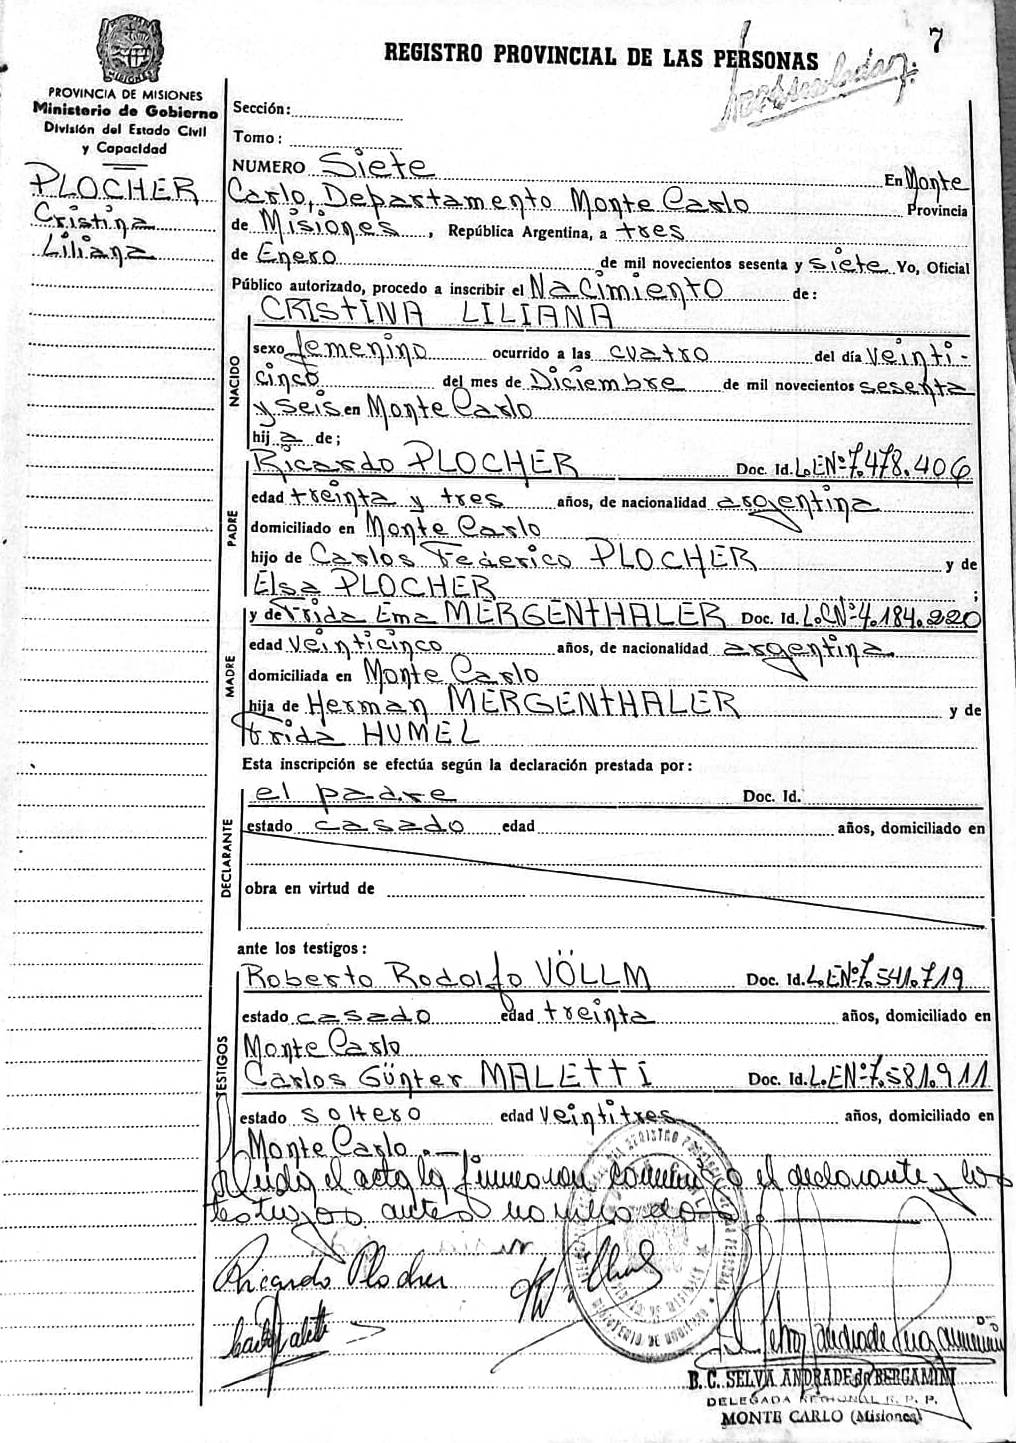 7
REGISTRO PROVINCIAL DE LAS PERSONAS
MISIONES
PROVINCIA DE MISIONES
Ministerio de Gobierno
División del Estado Civil
y Capacidad
PLOCHER
Cristina
Liliana
Sección:
Tomo:
NUMERO Siete En Monte
Carlo, Departamento Monte Carlo Provincia
de Misiones, República Argentina, a tres
de Enero de mil novecientos sesenta y siete Yo, Oficial
Público autorizado, procedo a inscribir el Nacimiento de:
NACIDO
CRIStINA LILIANA
sexo femenino ocurrido a las cuatro del día veinti-
cinco del mes de Diciembre de mil novecientos sesenta
y seis en Monte Carlo
hija de;
PADRE
Ricardo PLOCHER Doc. Id. L.E.Nº 7.478.406
edad treinta y tres años, de nacionalidad argentina
domiciliado en Monte Carlo
hijo de Carlos Federico PLOCHER y de
Elsa PLOCHER ;
MADRE
y de Frida Ema MERGENtHALER Doc. Id. L.C.Nº 4.184.220
edad veinticinco años, de nacionalidad argentina
domiciliada en Monte Carlo
hija de Herman MERGENtHALER y de
Frida HUMEL
Esta inscripción se efectúa según la declaración prestada por:
DECLARANTE
el padre Doc. Id.
estado casado edad años, domiciliado en
obra en virtud de
ante los testigos:
TESTIGOS
Roberto Rodolfo VÖLLM Doc. Id. L.E.Nº 7.541.719
estado casado edad treinta años, domiciliado en
Monte Carlo
Carlos Günter MALEttI Doc. Id. L.E.Nº 7.581.911
estado soltero edad veintitres años, domiciliado en
Monte Carlo.-
el acta la firmaron conmigo el declarante y los
testigos antes nombrados.
Ricardo Plocher
B. C. SELVA ANDRADE de BERGAMINI
DELEGADA REGIONAL R. P. P.
MONTE CARLO (Misiones)